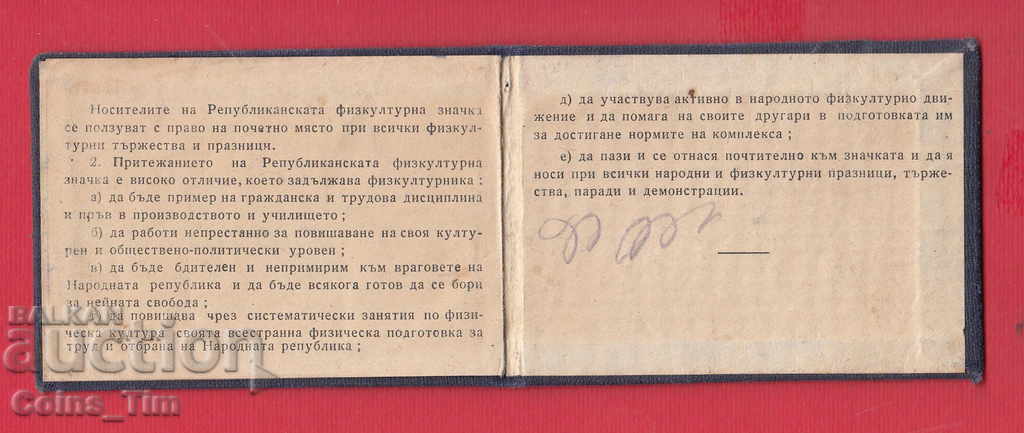 Носителите на Републиканската физкултурна значка
се ползуват с право на почетно място при всички физкул-
турни тържества и празници.
2. Притежанието на Републиканската физкултурна
значка е високо отличие, което задължава физкултурника:
а) да бъде пример на гражданска и трудова дисциплина
и пръв в производството и училището;
б) да работи непрестанно за повишаване на своя култу-
рен и обществено-политически уровен;
в) да бъде бдителен и непримирим към враговете на
Народната република и да бъде всякога готов да се бори
за нейната свобода;
да повишава чрез систематически занятия по физи-
ческа култура своята всестранна физическа подготовка за
труд и отбрана на Народната република;
д) да участвува активно в народното физкултурно дви-
жение и да помага на своите другари в подготовката им
за достигане нормите на комплекса;
е) да пази и се отнася почтително към значката и да я
носи при всички народни и физкултурни празници, търже-
ства, паради и демонстрации.
BALKAN
auction
Coins_Tim